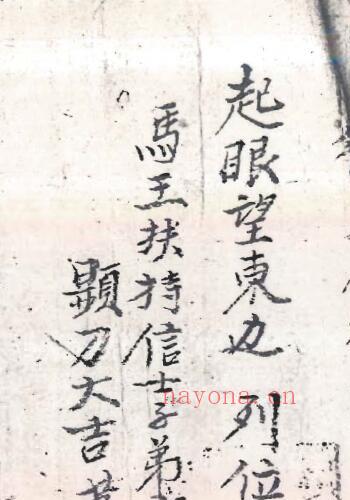 起眼望東边 列位
馬王扶持信士弟
顯刀大吉
nayona.cn